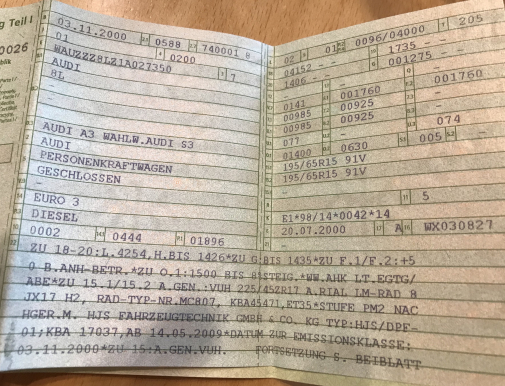 g Teil I
0026
03.11.2000 0588 740001 8
01 0200
WAUZZZ8LZ1A027350 7
AUDI
8L
-
-
AUDI A3 WAHLW.AUDI S3
AUDI
PERSONENKRAFTWAGEN
GESCHLOSSEN
-
EURO 3
DIESEL
0002 0444 01896
02 01 0096/04000 205
04152 - - 1735 -
1406 - - 001275 - -
0141 001760 001760
00985 00925
00985 00925
077 - - 074
01400 0630 005 -
195/65R15 91V
195/65R15 91V
-
- 5
E1*98/14*0042*14
20.07.2000 A WX030827
ZU 18-20:L.4254,H.BIS 1426*ZU G:BIS 1435*ZU F.1/F.2:+5
0 B.ANH-BETR.*ZU O.1:1500 BIS 8%STEIG.*WW.AHK LT.EGTG/
ABE*ZU 15.1/15.2 A.GEN.:VUH 225/45ZR17 A.RIAL LM-RAD 8
JX17 H2, RAD-TYP-NR.MC807, KBA45471,ET35*STUFE PM2 NAC
HGER.M. HJS FAHRZEUGTECHNIK GMBH & CO. KG TYP:HJS/DPF-
01;KBA 17037,AB 14.05.2009*DATUM ZUR EMISSIONSKLASSE:
03.11.2000*ZU 15:A.GEN.VUH. FORTSETZUNG S. BEIBLATT